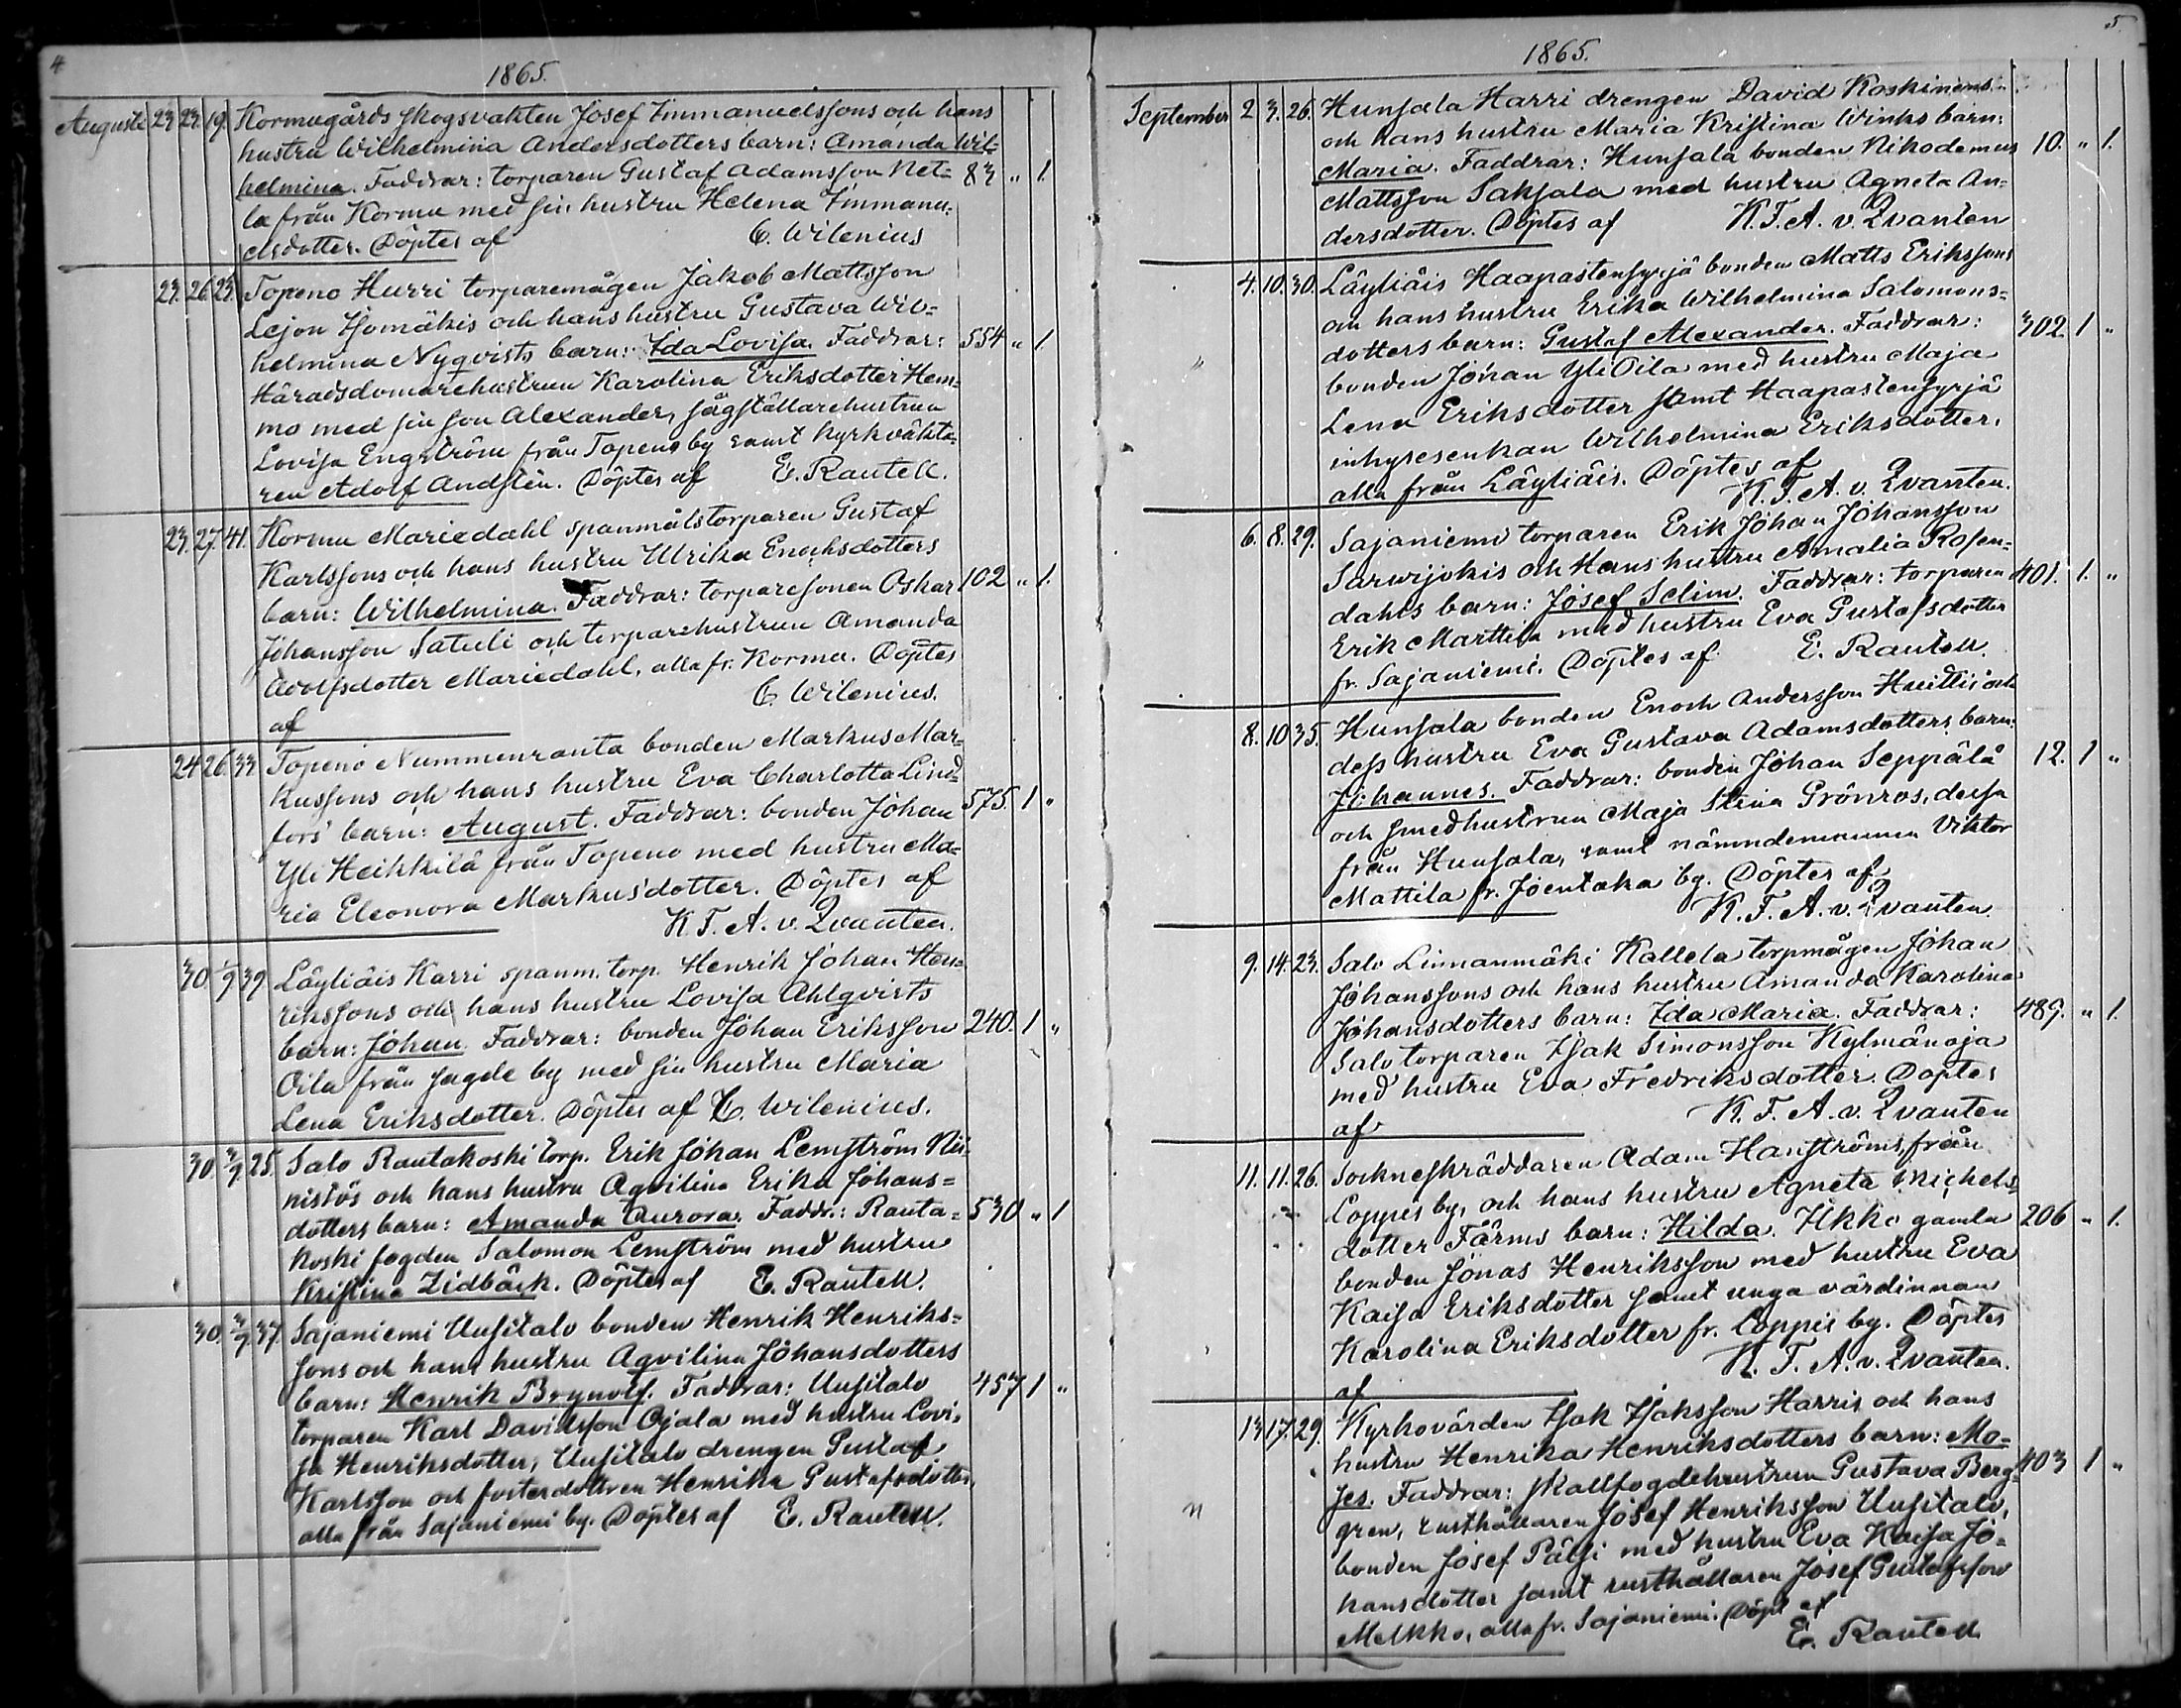 4
1865.
Augusti 23 23. 19. Kormugårds skogsvakten Josef Immanuelssons och hans
hustru Wilhelmina Andersdotters barn: Amanda Wil=
helmina. Faddrar: torparen Gustaf Adamsson Net= 83 " 1.
la från Kormu med sin hustru Helena Immanu=
elsdotter. Döptes af C. Wilenius
23. 26. 23. Topeno Hurri torparemågen Jakob Mattsson
Lejon Isomäkis och hans hustru Gustava Wil=
helmina Nyqvists barn: Ida Lovisa. Faddrar: 554 " 1.
Häradsdomarehustrun Karolina Eriksdotter Hem=
mo med sin son Alexander, sågställarehustrun
Lovisa Engström från Topeno by samt kyrkväkta=
ren Adolf Andstén. Döptes af E. Rautell.
23. 27. 41. Kormu Mariedahl spanmålstorparen Gustaf
Karlssons och hans hustru Ulrika Enochsdotters
barn: Wilhelmina. Faddrar: torparesonen Oskar 102 " 1.
Johansson Satuli och torparehustrun Amanda
Adolfsdotter Mariedahl, alla fr. Kormu. Döptes
af C. Wilenius.
24 26. 33 Topeno Nummenranta bonden Markus Mar=
kussons och hans hustru Eva Charlotta Lind=
fors' barn: August. Faddrar: bonden Johan 575. 1 "
Yli Heikkilä från Topeno med hustru Ma=
ria Eleonora Markusdotter. Döptes af
K. F. A. v. Qvanten.
30. 1/9 39. Läyliäis Karri spanm. torp. Henrik Johan Hen=
rikssons och hans hustru Lovisa Ahlqvists
barn: Johan. Faddrar: bonden Johan Eriksson 240. 1 "
Oila från sagde by med sin hustru Maria
Lena Eriksdotter. Döptes af C. Wilenius.
30. 3/9. 25. Salo Rautakoski torp. Erik Johan Lemström Nii=
nistös och hans hustru Aqvilina Erika Johans=
dotters barn: Amanda Aurora. Faddr.: Rauta= 530 " 1
koski fogden Salomon Lemström med hustru
Kristina Lidbäck. Döptes af E. Rautell.
30. 3/9. 37. Sajaniemi Uusitalo bonden Henrik Henriks=
sons och hans hustru Aqvilina Johansdotters
barn: Henrik Brynolf. Faddrar: Uusitalo 457 1 "
torparen Karl Davidsson Ojala med hustru Lovi=
sa Henriksdotter, Uusitalo drengen Gustaf
Karlsson och fosterdottren Henrika Gustafsdotter,
alla från Sajaniemi by. Döptes af E. Rautell.
5.
1865.
September 2 3. 26. Hunsala Harri drengen David Koskinens
och hans hustru Maria Kristina Winks barn:
Maria. Faddrar: Hunsala bonden Nikodemus 10. " 1.
Mattsson Saksala med hustru Agneta An=
dersdotter. Döptes af K. F. A. v. Qvanten
4. 10. 30. Läyliäis Haapastensyrjä bonden Matts Erikssons
och hans hustru Erika Wilhelmina Salomons=
dotters barn: Gustaf Alexander. Faddrar: 302. 1 "
bonden Johan Yli Oila med hustru Maja
Lena Eriksdotter samt Haapastensyrjä
inhysesenkan Wilhelmina Eriksdotter,
alla från Läyliäis. Döptes af
K. F. A. v. Qvanten.
6. 8. 29. Sajaniemi torparen Erik Johan Johansson
Sarvijokis och Hans hustru Amalia Rosen=
dahls barn: Josef Selim. Faddrar: torparen 401. 1. "
Erik Marttila med hustru Eva Gustafsdotter
fr. Sajaniemi. Döptes af E. Rautell.
8. 10 35. Hunsala bonden Enoch Andersson Huittis och
dess hustru Eva Gustava Adamsdotters barn:
Johannes. Faddrar: bonden Johan Seppälä 12. 1 "
och smedhustrun Maja Stina Grönros, dessa
från Hunsala, samt nämndemannen Viktor
Mattila fr. Joentaka by. Döptes af
K. F. A. v. Qvanten.
9. 14. 23. Salo Linnanmäki Kallela torpmågen Johan
Johanssons och hans hustru Amanda Karolina
Johansdotters barn: Ida Maria. Faddrar: 489. " 1.
Salo torparen Isak Simonsson Kylmänoja
med hustru Eva Fredriksdotter. Döptes
af K. F. A. v. Qvanten
11. 11. 26. Sockneskräddaren Adam Hanströms från
Loppis by, och hans hustru Agneta Michels=
dotter Färms barn: Hilda. Ukko gamla 206 " 1.
bonden Jonas Henriksson med hustru Eva
Kaisa Eriksdotter samt unga värdinnan
Karolina Eriksdotter fr. Loppis by. Döptes
af K. F. A. v. Qvanten.
13 17. 29. Kyrkovärden Isak Isaksson Harris och hans
hustru Henrika Henriksdotters barn: Mo=
ses. Faddrar: skallfogdehustrun Gustava Berg= 403 1 "
gren, rusthållaren Josef Henriksson Uusitalo,
bonden Josef Pälsi med hustru Eva Kaisa Jo=
hansdotter samt rusthållaren Josef Gustafsson
Melkko, alla fr. Sajaniemi. Döpt af
E. Rautell